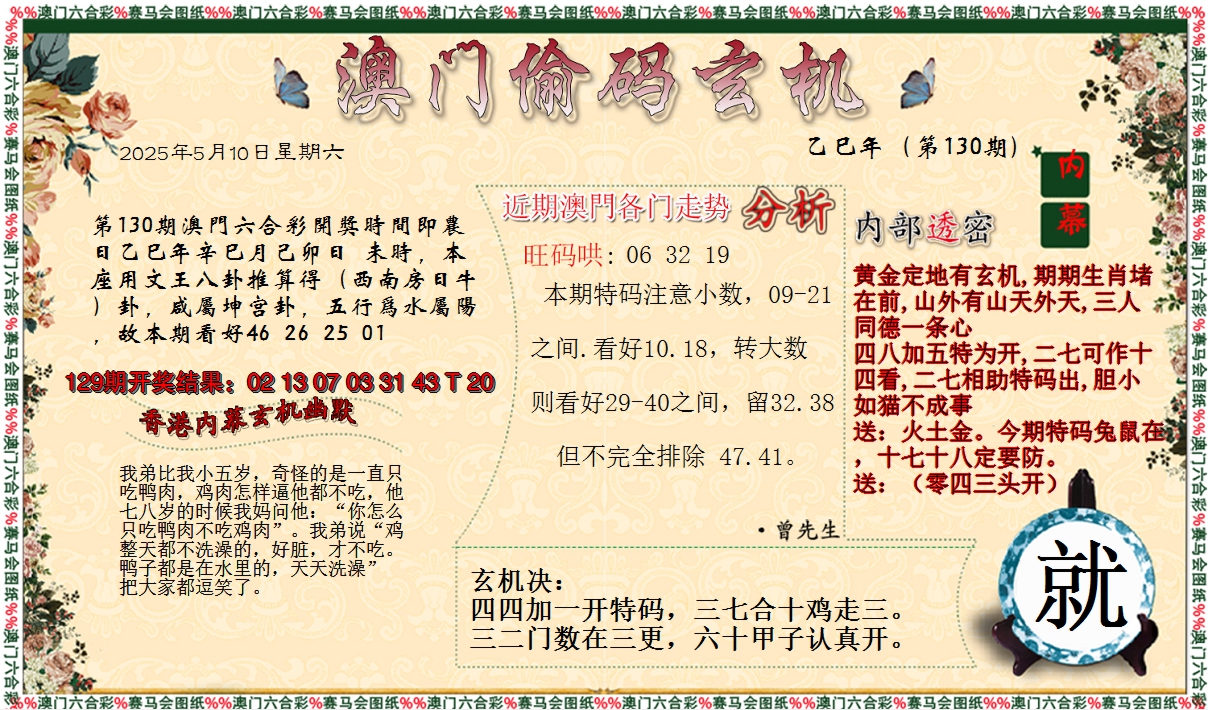 %%澳门六合彩%赛马会图纸%%澳门六合彩%赛马会图纸%%澳门六合彩%赛马会图纸%%澳门六合彩%赛马会图纸%%澳门六合彩%赛马会图纸%%澳门六合彩%赛马会图纸%%
澳门偷码玄机
2025年5月10日星期六
乙巳年（第130期）
内幕
第130期澳門六合彩開獎時間即農
日乙巳年辛巳月己卯日 未時，本
座用文王八卦推算得（西南房日牛
）卦，咸屬坤宫卦，五行爲水屬陽
，故本期看好46 26 25 01
129期开奖结果：02 13 07 03 31 43 T 20
香港内幕玄机幽默
我弟比我小五岁，奇怪的是一直只
吃鸭肉，鸡肉怎样逼他都不吃，他
七八岁的时候我妈问他：“你怎么
只吃鸭肉不吃鸡肉”。我弟说“鸡
整天都不洗澡的，好脏，才不吃。
鸭子都是在水里的，天天洗澡”
把大家都逗笑了。
近期澳門各门走势 分析
旺码哄: 06 32 19
本期特码注意小数，09-21
之间.看好10.18，转大数
则看好29-40之间，留32.38
但不完全排除 47.41。
·曾先生
内部透密
黄金定地有玄机,期期生肖堵
在前,山外有山天外天,三人
同德一条心
四八加五特为开,二七可作十
四看,二七相助特码出,胆小
如猫不成事
送：火土金。今期特码兔鼠在
，十七十八定要防。
送：（零四三头开）
玄机决：
四四加一开特码，三七合十鸡走三。
三二门数在三更，六十甲子认真开。
就
%%澳门六合彩%赛马会图纸%%澳门六合彩%赛马会图纸%%澳门六合彩%赛马会图纸%%澳门六合彩%赛马会图纸%%澳门六合彩%赛马会图纸%%澳门六合彩%赛马会图纸%%